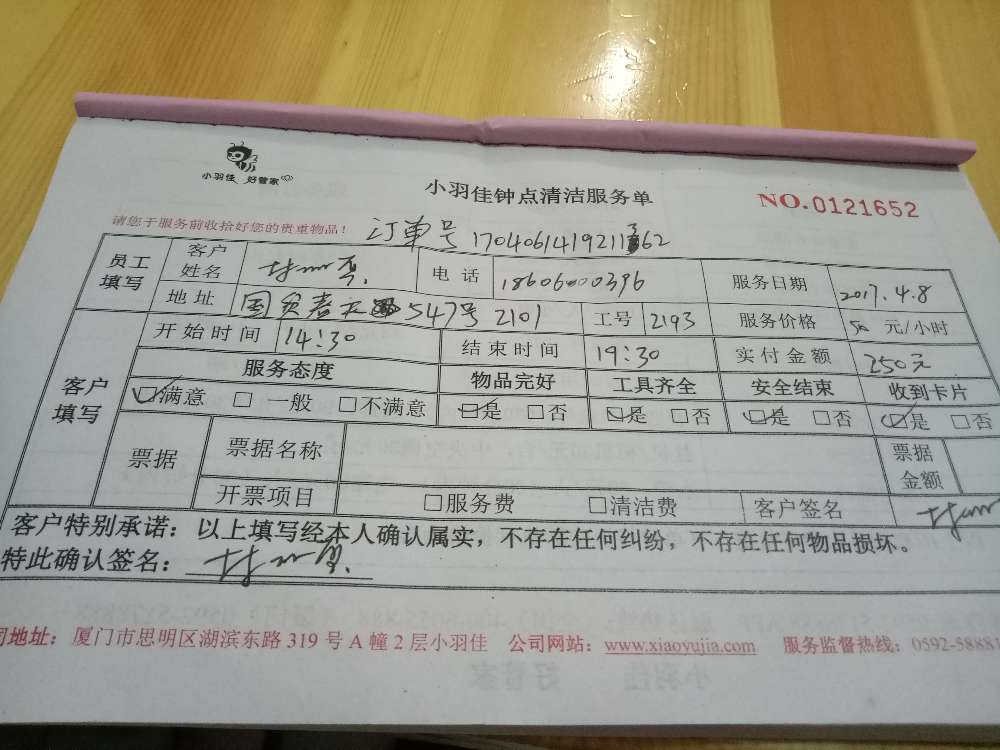 小羽佳 好管家
小羽佳钟点清洁服务单
NO.0121652
请您于服务前收拾好您的贵重物品！
订单号
员工填写 客户姓名 电话 18606000396 服务日期 2017.4.8
地址 国贸春天 547号 2101 工号 2193 服务价格 50 元/小时
客户填写 开始时间 14:30 结束时间 19:30 实付金额 250元
服务态度 物品完好 工具齐全 安全结束 收到卡片
满意 一般 不满意 是 否 是 否 是 否 是 否
票据 票据名称 票据金额
开票项目 服务费 清洁费 客户签名
客户特别承诺：以上填写经本人确认属实，不存在任何纠纷，不存在任何物品损坏。
特此确认签名：
司地址：厦门市思明区湖滨东路 319 号 A 幢 2 层小羽佳 公司网站：www.xiaoyujia.com 服务监督热线：0592-58881